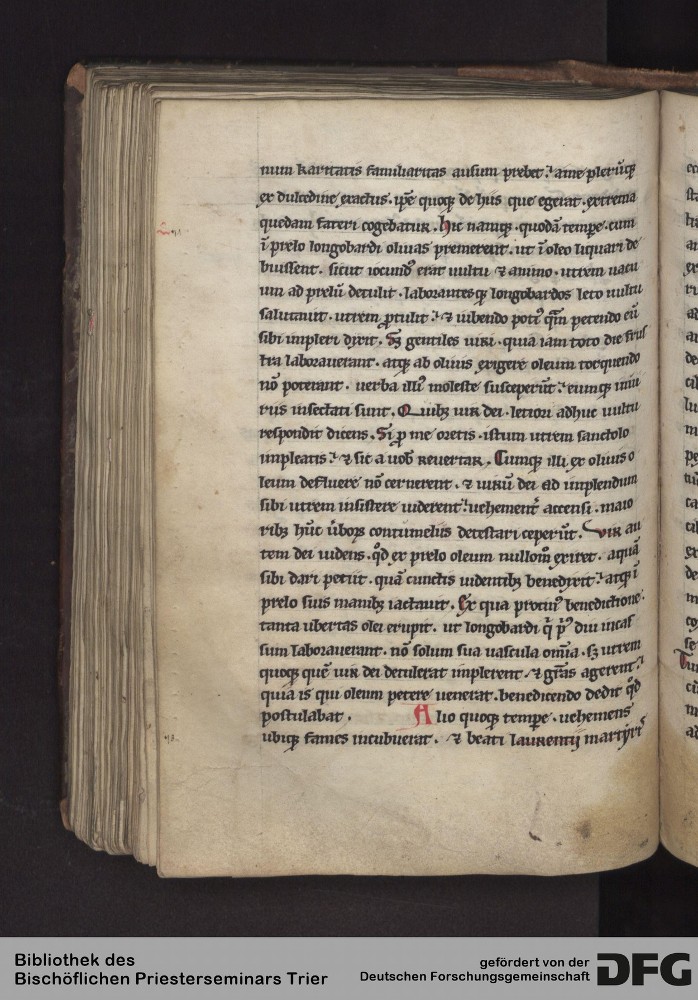 num karitatis familiaritas ausum prebet. a me plerūq;
ex dulcedine exactus. ip̄e quoq; de hiis que egerat. extrema
quedam fateri cogebatur. Hic namq; quodā tempe. cum
ī prelo longobardi oliuas premerent. ut ī oleo liquari de
buissent. sicut iocund⁹ erat uultu ⁊ animo. utrem uacu
um ad prelū detulit. laborantesq; longobardos leto uultu
salutauit. utrem ꝓtulit. ⁊ iubendo poti⁹ q̄m petendo eū
sibi impleri dixit. Sꝫ gentiles uiri. quia iam toto die frus
tra laborauerant. atq; ab oliuis exigere oleum torquendo
nō poterant. uerba illi⁹ moleste susceperūt. eumq; iniu
riis insectati sunt. Quibꝫ uir dei. letiori adhuc uultu
respondit dicens. Si ꝓ me oretis. istum utrem sanctolo
impleatis. ⁊ sic a uob̄ reuertar. Cumq; illi ex oliuis o
leum defluere nō cernerent. ⁊ uirū dei ad implendum
sibi utrem insistere uiderent. uehement̄ accensi. maio
ribꝫ hūc ūboꝝ contumeliis detestari ceperūt. Vir au
tem dei uidens. qd̄ ex prelo oleum nullom̄ exiret. aquā
sibi dari petiit. quā cunctis uidentibꝫ benedixit. atq; ī
prelo suis manibꝫ iactauit. Ex qua protin⁹ benedictione.
tanta ubertas olei erupit. ut longobardi q̄ p⁹ diu incas
sum laborauerant. nō solum sua uascula om̄ia. sꝫ utrem
quoq; quē uir dei detulerat implerent. ⁊ grās agerent.
quia is qui oleum petere uenerat. benedicendo dedit qd̄
postulabat. Alio quoq; tempe. uehemens
ubiq; fames incubuerat. ⁊ beati laurentij martyris
Bibliothek des
Bischöflichen Priesterseminars Trier
gefördert von der
Deutschen Forschungsgemeinschaft
DFG